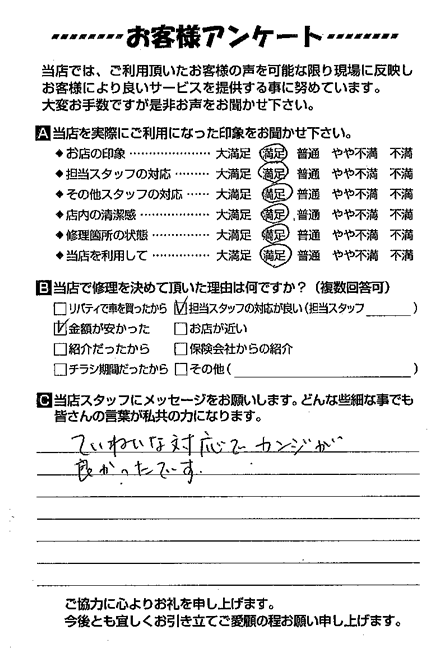 お客様アンケート
当店では、ご利用頂いたお客様の声を可能な限り現場に反映し
お客様により良いサービスを提供する事に努めています。
大変お手数ですが是非お声をお聞かせ下さい。
A 当店を実際にご利用になった印象をお聞かせ下さい。
◆お店の印象 ………………… 大満足 満足 普通 やや不満 不満
◆担当スタッフの対応 ……… 大満足 満足 普通 やや不満 不満
◆その他スタッフの対応 …… 大満足 満足 普通 やや不満 不満
◆店内の清潔感 ……………… 大満足 満足 普通 やや不満 不満
◆修理箇所の状態 …………… 大満足 満足 普通 やや不満 不満
◆当店を利用して …………… 大満足 満足 普通 やや不満 不満
B 当店で修理を決めて頂いた理由は何ですか？（複数回答可）
□リバティで車を買ったから ☑担当スタッフの対応が良い（担当スタッフ______）
☑金額が安かった □お店が近い
□紹介だったから □保険会社からの紹介
□チラシ期間だったから □その他（______）
C 当店スタッフにメッセージをお願いします。どんな些細な事でも
皆さんの言葉が私共の力になります。
ていねいな対応で カンジが
良かったです.
ご協力に心よりお礼を申し上げます。
今後とも宜しくお引き立てご愛顧の程お願い申し上げます。